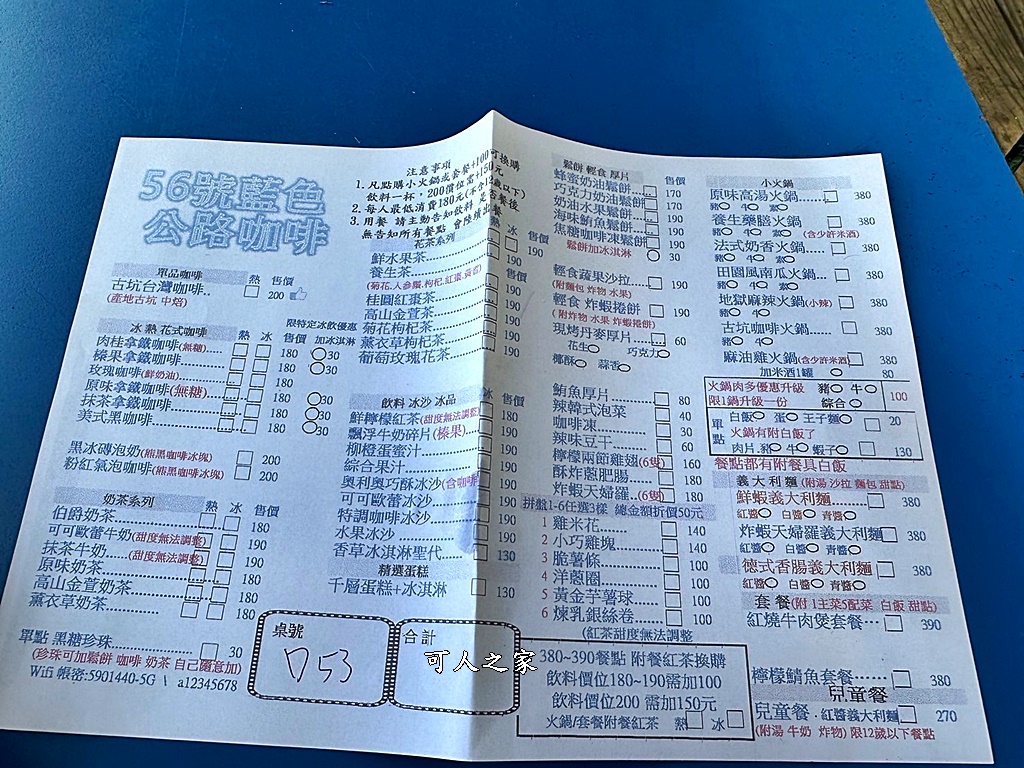 56號藍色
公路咖啡
單品咖啡 熱 售價
古坑台灣咖啡.. 200
(產地古坑 中焙)
冰 熱 花式咖啡 熱 冰 售價
限特定冰飲優惠
加冰淇淋
肉桂拿鐵咖啡(無糖)..... 180 30
榛果拿鐵咖啡........ 180 30
玫瑰咖啡(鮮奶油)...... 180
原味拿鐵咖啡(無糖)... 180 30
抹茶拿鐵咖啡......... 180 30
美式黑咖啡......... 180 30
黑冰磚泡奶(熊黑咖啡冰塊) 200
粉紅氣泡咖啡(熊黑咖啡冰塊) 200
奶茶系列 熱 冰 售價
伯爵奶茶 180
可可歐蕾牛奶(甜度無法調整) 190
抹茶牛奶....(甜度無法調整) 190
原味奶茶 180
高山金萱奶茶 180
薰衣草奶茶 180
單點 黑糖珍珠..... 30
(珍珠可加鬆餅 咖啡 奶茶 自己隨意加)
Wifi 帳密:5901440-5G \ a12345678
注意事項
1. 凡點購小火鍋或套餐+100可換購
飲料一杯，200價位需+150元
2. 每人最低消費180元(不含12歲以下)
3. 用餐 請主動告知飲料 是否餐後
無告知所有餐點 會陸續出餐
花茶系列 熱 冰 售價
鮮水果茶 190
養生茶 190
(菊花,人參鬚,枸杞,紅棗,黃耆)
桂圓紅棗茶 190
高山金萱茶 190
菊花枸杞茶 190
薰衣草枸杞茶 190
葡萄玫瑰花茶 190
飲料 冰沙 冰品 熱 冰 售價
鮮檸檬紅茶(甜度無法調整) 180
飄浮牛奶碎片(榛果) 190
柳橙蛋蜜汁 190
綜合果汁 190
奧利奧巧酥冰沙(含咖啡) 190
可可歐蕾冰沙 190
特調咖啡冰沙 190
水果冰沙 190
香草冰淇淋聖代 130
精選蛋糕
千層蛋糕+冰淇淋 130
桌號
053
合計
鬆餅 輕食 厚片 售價
蜂蜜奶油鬆餅 170
巧克力奶油鬆餅 170
奶油水果鬆餅 190
海味鮪魚鬆餅 190
焦糖咖啡凍鬆餅 190
鬆餅加冰淇淋 30
輕食蔬果沙拉 190
(附麵包 炸物 水果)
輕食 炸蝦捲餅 190
(附炸物 水果 炸蝦捲餅)
現烤丹麥厚片 60
花生 巧克力
椰酥 蒜香
鮪魚厚片 80
辣韓式泡菜 40
咖啡凍 30
辣味豆干 60
檸檬兩節雞翅(6隻) 160
酥炸蔥肥腸 180
炸蝦天婦羅..(6隻) 180
拼盤1-6任選3樣 總金額折價50元
1 雞米花 140
2 小巧雞塊 140
3 脆薯條 100
4 洋蔥圈 100
5 黃金芋薯球 100
6 煉乳銀絲卷 100
(紅茶甜度無法調整
380~390餐點 附餐紅茶換購
飲料價位180~190需加100
飲料價位200 需加150元
火鍋/套餐附餐紅茶 熱 冰
小火鍋 售價
原味高湯火鍋 380
豬 牛 素
養生藥膳火鍋 380
豬 牛 素 (含少許米酒)
法式奶香火鍋 380
豬 牛 素
田園風南瓜火鍋 380
豬 牛 素
地獄麻辣火鍋(小辣) 380
豬 牛
古坑咖啡火鍋 380
豬 牛
麻油雞火鍋(含少許米酒) 380
加米酒1罐 80
火鍋肉多優惠升級 豬 牛
限1鍋升級一份 綜合 100
單點 白飯 蛋 王子麵 20
火鍋有附白飯了
肉片.豬 牛 蝦子 130
餐點都有附餐具白飯
義大利麵(附湯 沙拉 麵包 甜點)
鮮蝦義大利麵 380
紅醬 白醬 青醬
炸蝦天婦羅義大利麵 380
紅醬 白醬 青醬
德式香腸義大利麵 380
紅醬 白醬 青醬
套餐(附 1主菜5配菜 白飯 甜點)
紅燒牛肉煲套餐 390
檸檬鯖魚套餐 380
兒童餐
兒童餐.紅醬義大利麵 270
(附湯 牛奶 炸物) 限12歲以下餐點
可人之家